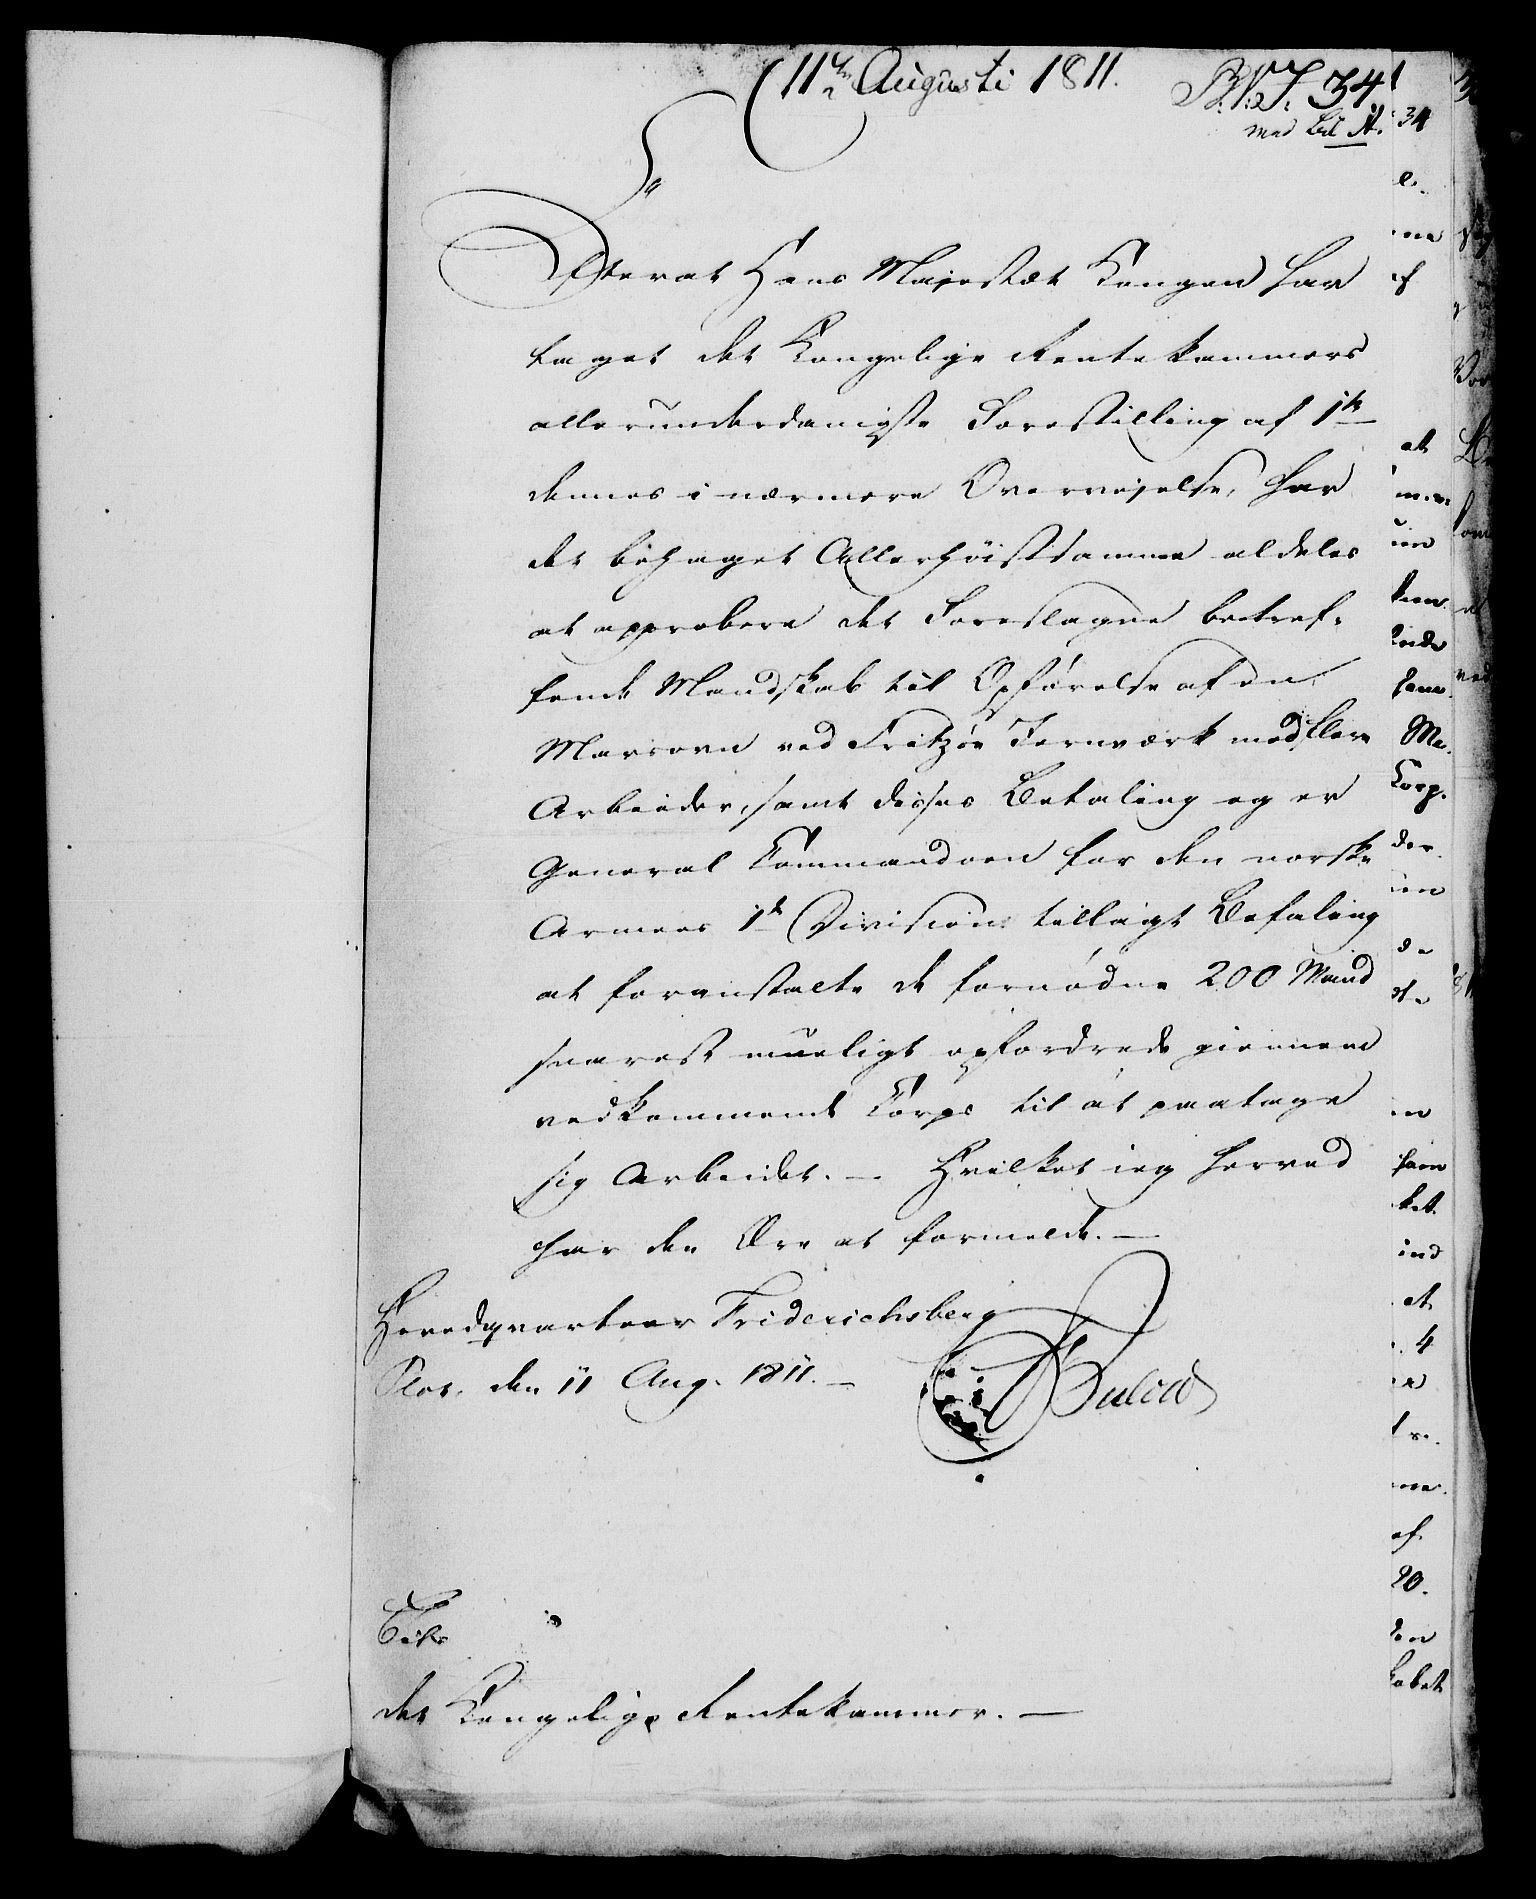 11te Augusti 1811.
B: N: J: 34
med Bil A:
Efterat Hans Majestæt Kongen har
taget det Kongelige Rentekammers
allerunderdanigste Forestilling af 1te
dennes i nærmere Overveielse, har
det behaget Allerhöistsamme aldeles
at approbere det Foreslagne betref-
fende Mandskab til Opförelse af en
Marsovn ved Fritzøe Jernværk med flere
Arbeider, samt disses Betaling og er
General Commandoen for den norske
Armees 1te Division tillagt Befaling
at foranstalte de fornødne 200 Mand
snarest mueligt opfordrede giennem
vedkommende Corps til at paatage
sig Arbeidet. — Hvilket ieg herved
har den Ære at formelde. —
Hovedqvarteer Friderichsberg
Slot. den 11 Aug. 1811. —
Bülow
Til
det Kongelige Rentekammer. —